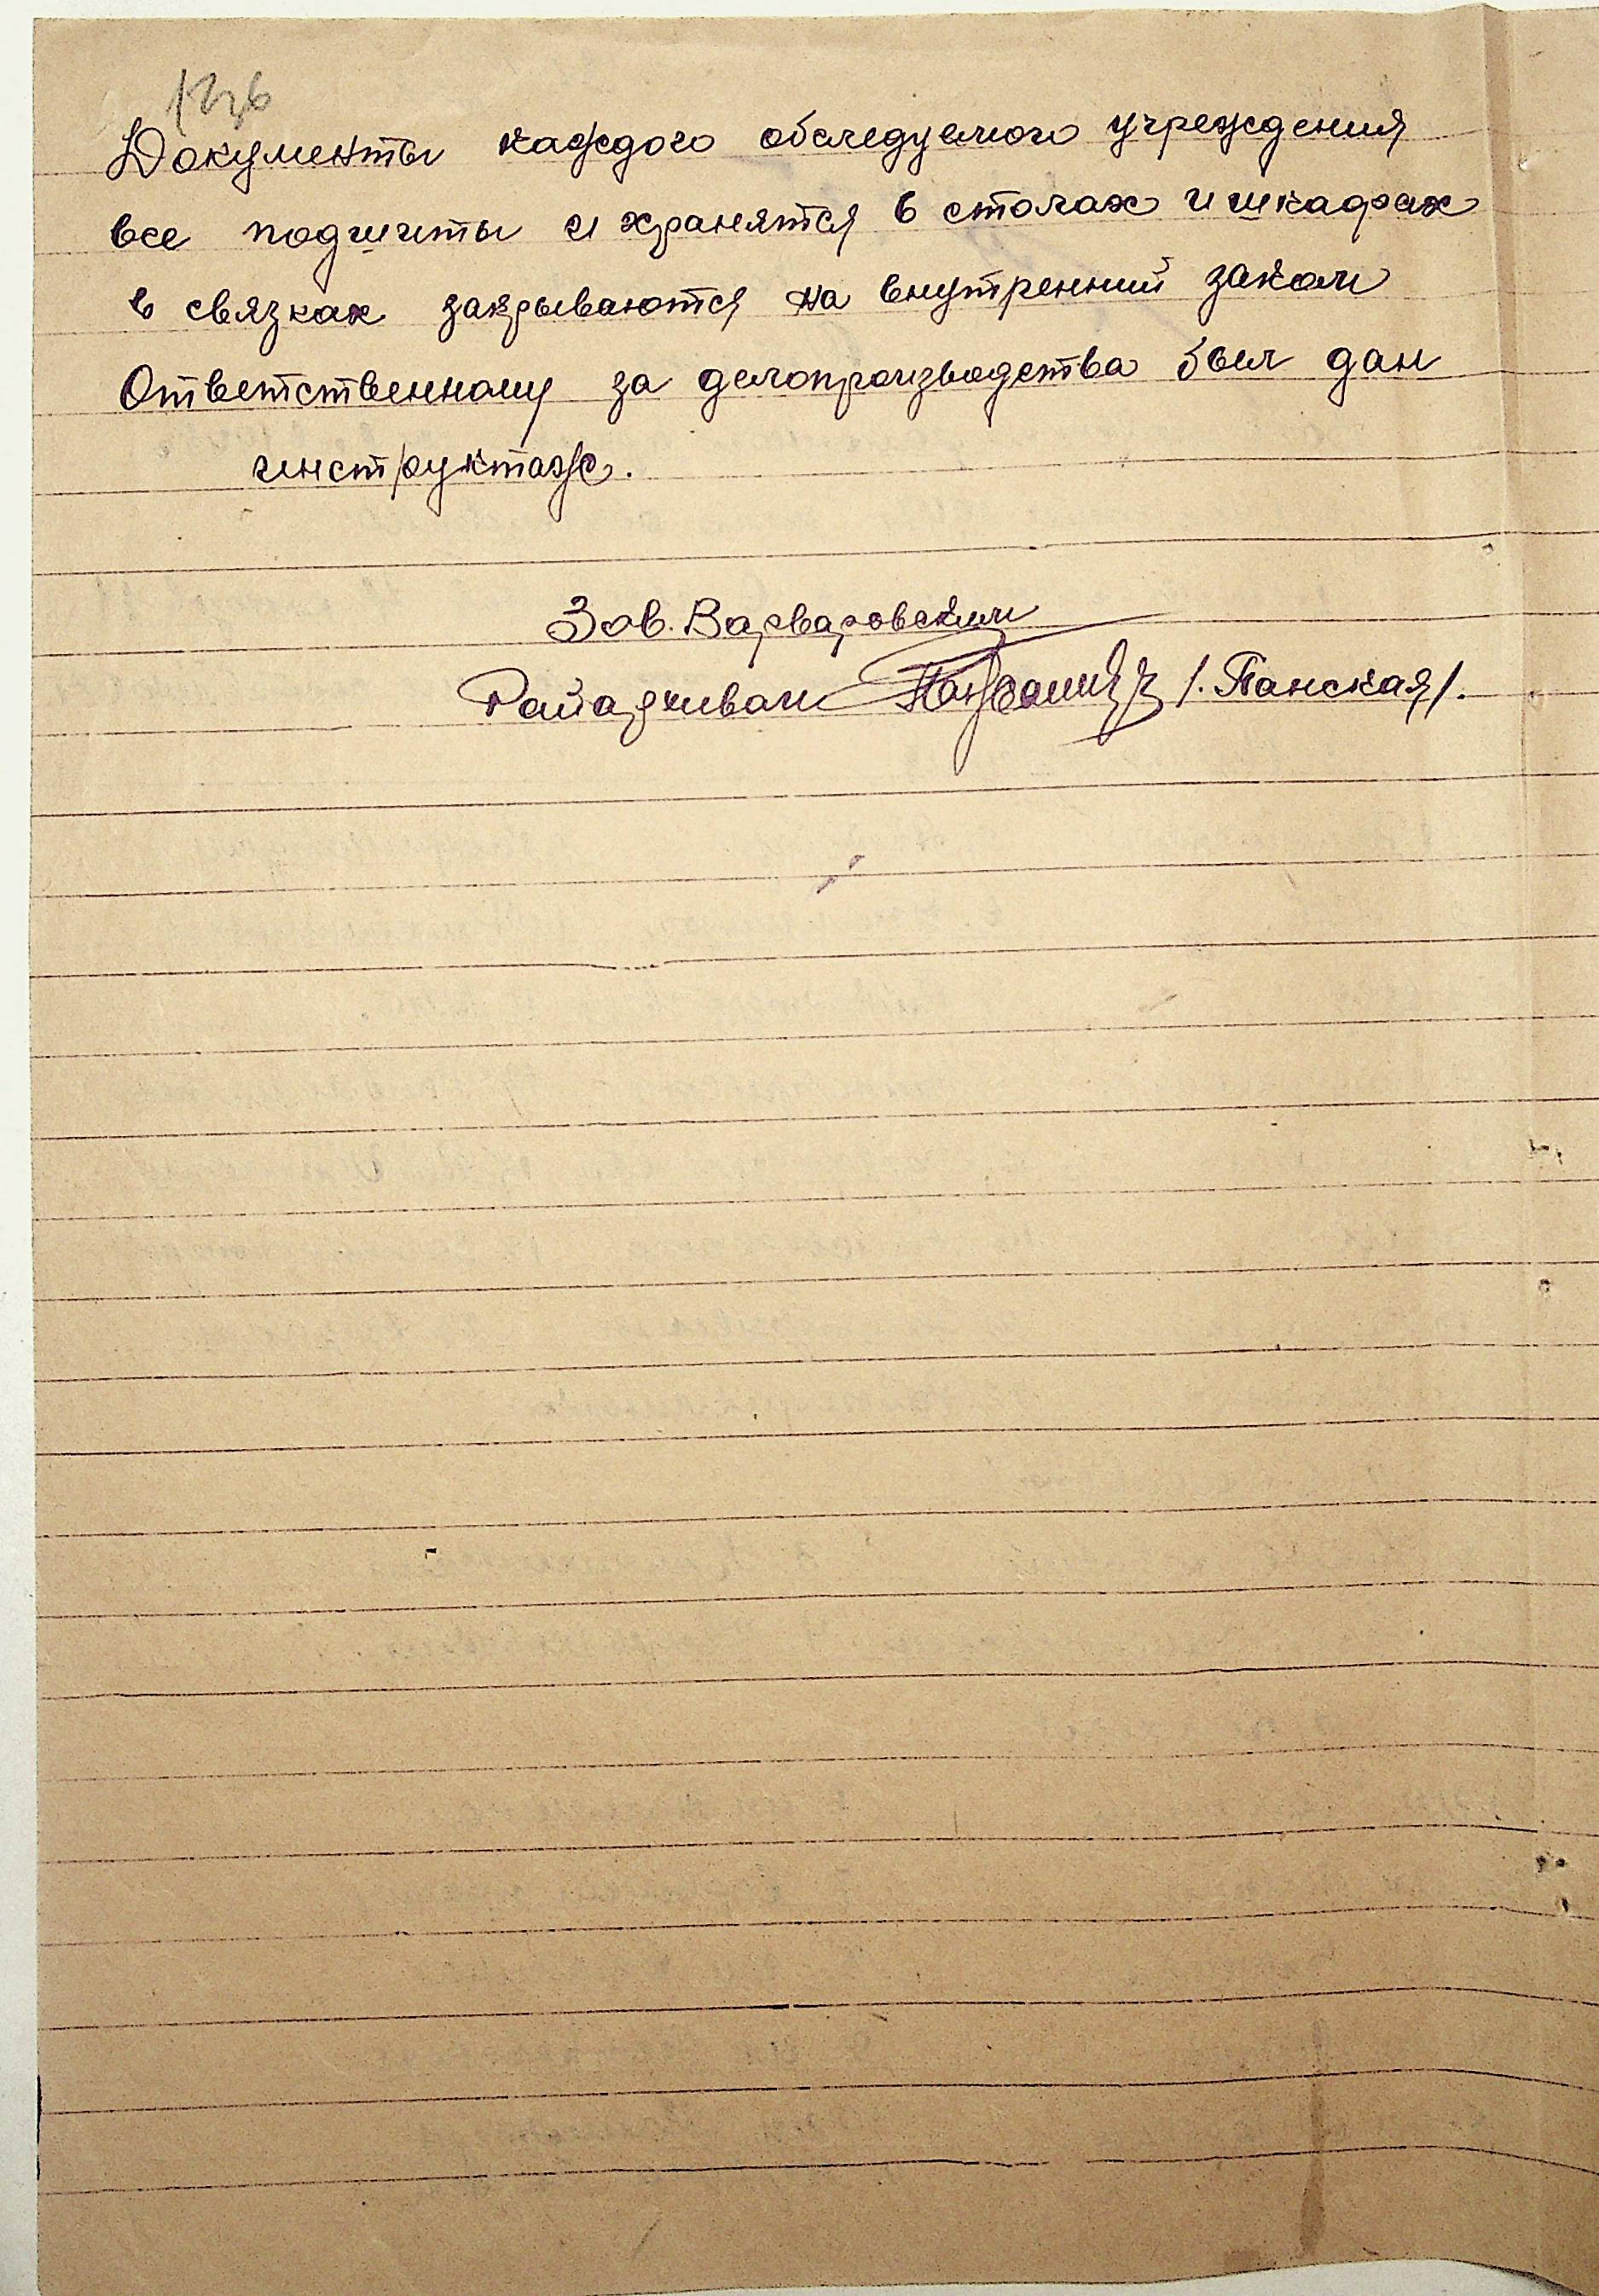 Документы каждого обследуемого учреждения
все подшиты и хранятся в столах и шкафах
в связках закрываются на внутренний
Ответственному за делопроизводства был дан
инструктаж.
Зав. Варваровским
Райархивом /. Панская/.